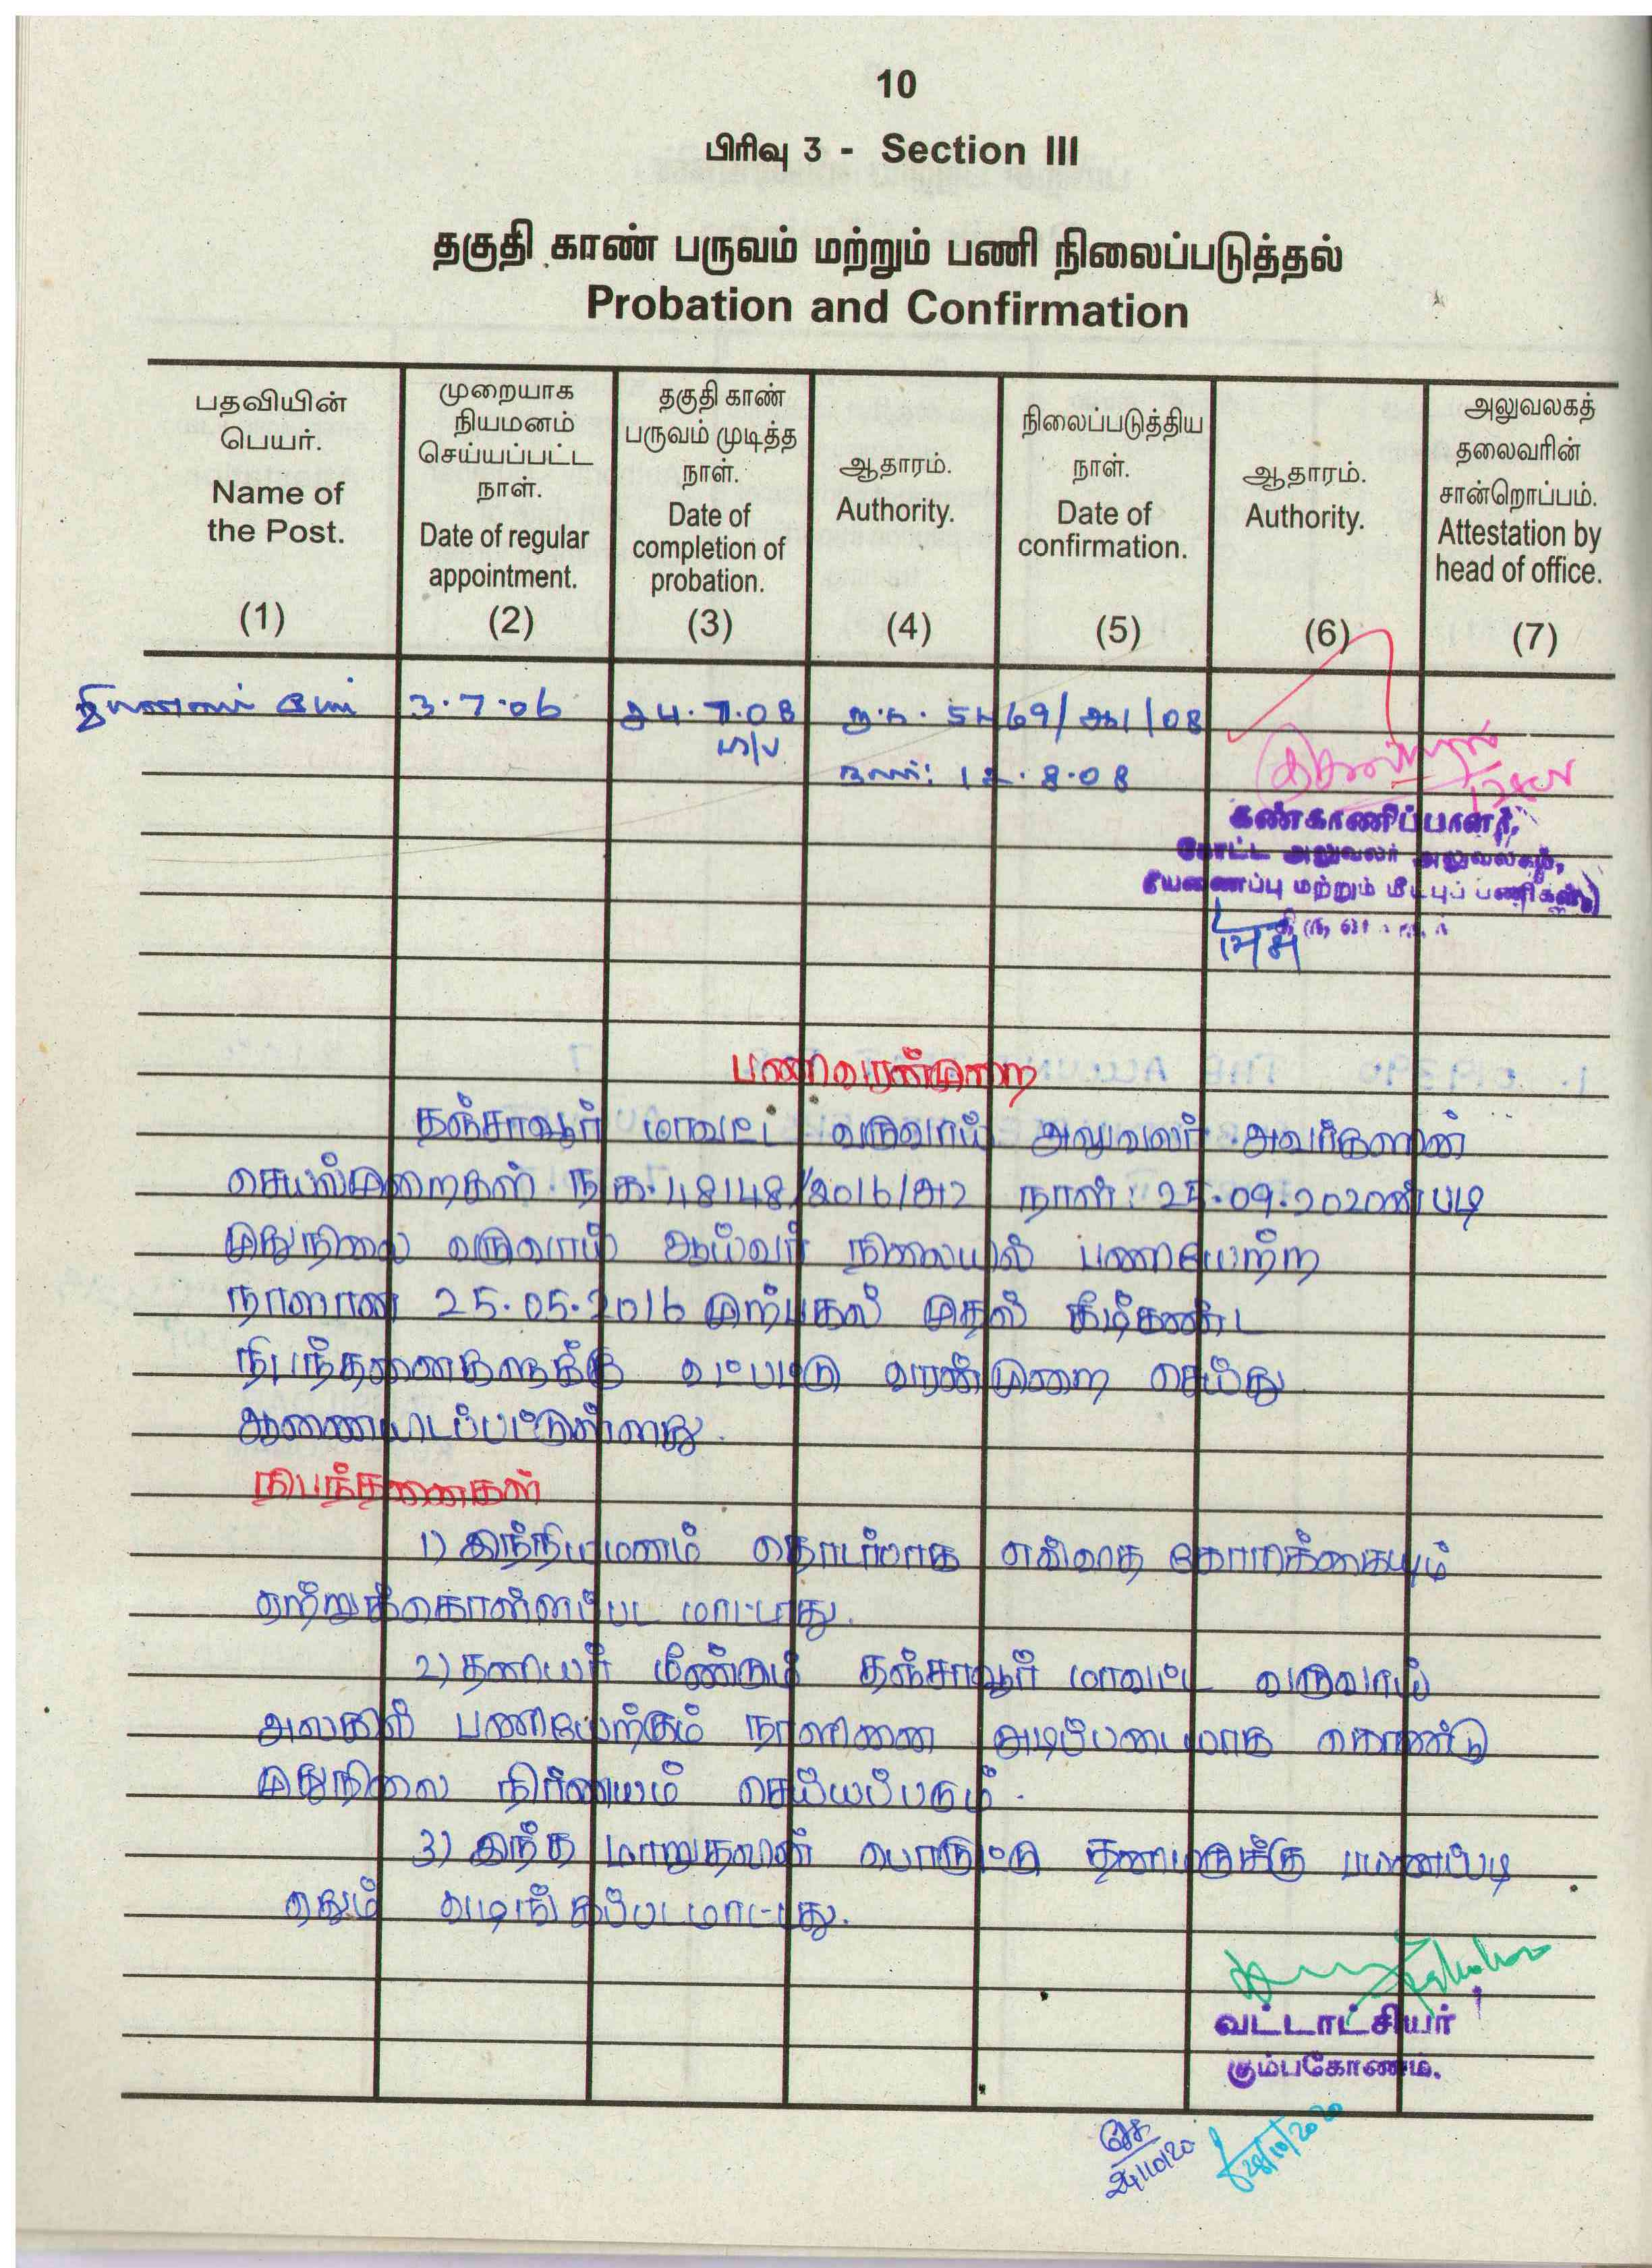 10
பிரிவு 3 - Section III
தகுதி காண் பருவம் மற்றும் பணி நிலைப்படுத்தல்
Probation and Confirmation
பதவியின் பெயர். Name of the Post. (1)
முறையாக நியமனம் செய்யப்பட்ட நாள். Date of regular appointment. (2)
தகுதி காண் பருவம் முடித்த நாள். Date of completion of probation. (3)
ஆதாரம். Authority. (4)
நிலைப்படுத்திய நாள். Date of confirmation. (5)
ஆதாரம். Authority. (6)
அலுவலகத் தலைவரின் சான்றொப்பம். Attestation by head of office. (7)
3.7.06 24.7.08 69/ஆ1/08
நாள்: 12.8.08
கண்காணிப்பாளர்,
கோட்ட அலுவலர் அலுவலகம்,
மற்றும் மீட்புப் பணிகள்)
பணிவரன்முறை
தஞ்சாவூர் மாவட்ட வருவாய் அலுவலர் அவர்களின்
செயல்முறைகள் ந.க.48148/2016/அ2 நாள்: 25.09.2020ன்படி
முதுநிலை வருவாய் ஆய்வர் நிலையில் பணியேற்ற
நாளான 25.05.2016 முற்பகல் முதல் கீழ்கண்ட
நிபந்தனைகளுக்கு உட்பட்டு வரன்முறை செய்து
ஆணையிடப்பட்டுள்ளது.
நிபந்தனைகள்
1) இந்நியமனம் தொடர்பாக எவ்வித கோரிக்கையும்
ஏற்றுக்கொள்ளப்பட மாட்டாது.
2) தனியர் மீண்டும் தஞ்சாவூர் மாவட்ட வருவாய்
அலகில் பணியேற்கும் நாளினை அடிப்படையாக கொண்டு
முதுநிலை நிர்ணயம் செய்யப்படும்.
3) இந்த மாறுதலின் பொருட்டு தனியருக்கு பயணப்படி
ஏதும் வழங்கப்படமாட்டாது.
வட்டாட்சியர்
கும்பகோணம்.
24/10/20
28/10/2020